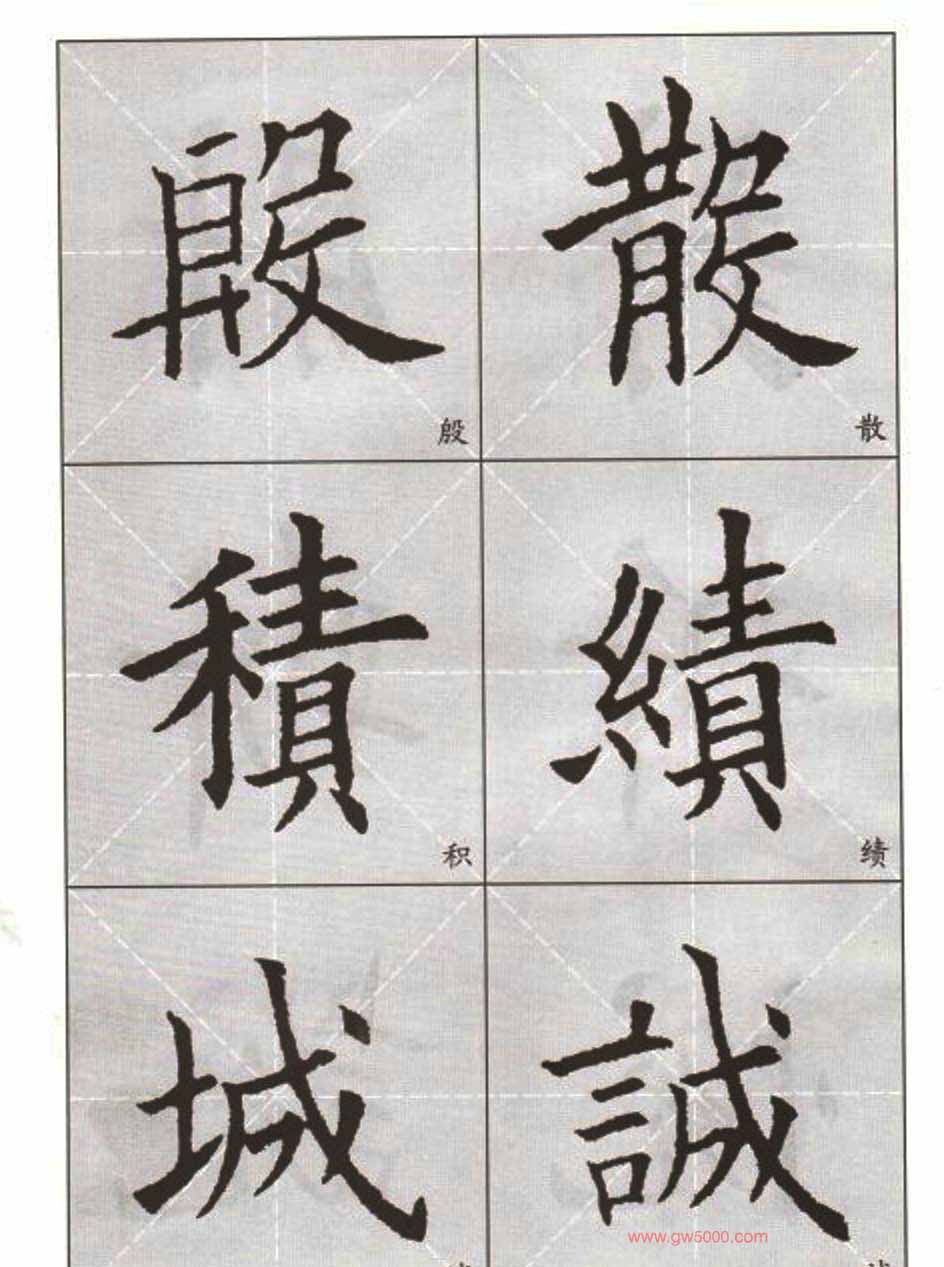 殷 散
殷 散
積 績
积 绩
城 誠
www.gw5000.com